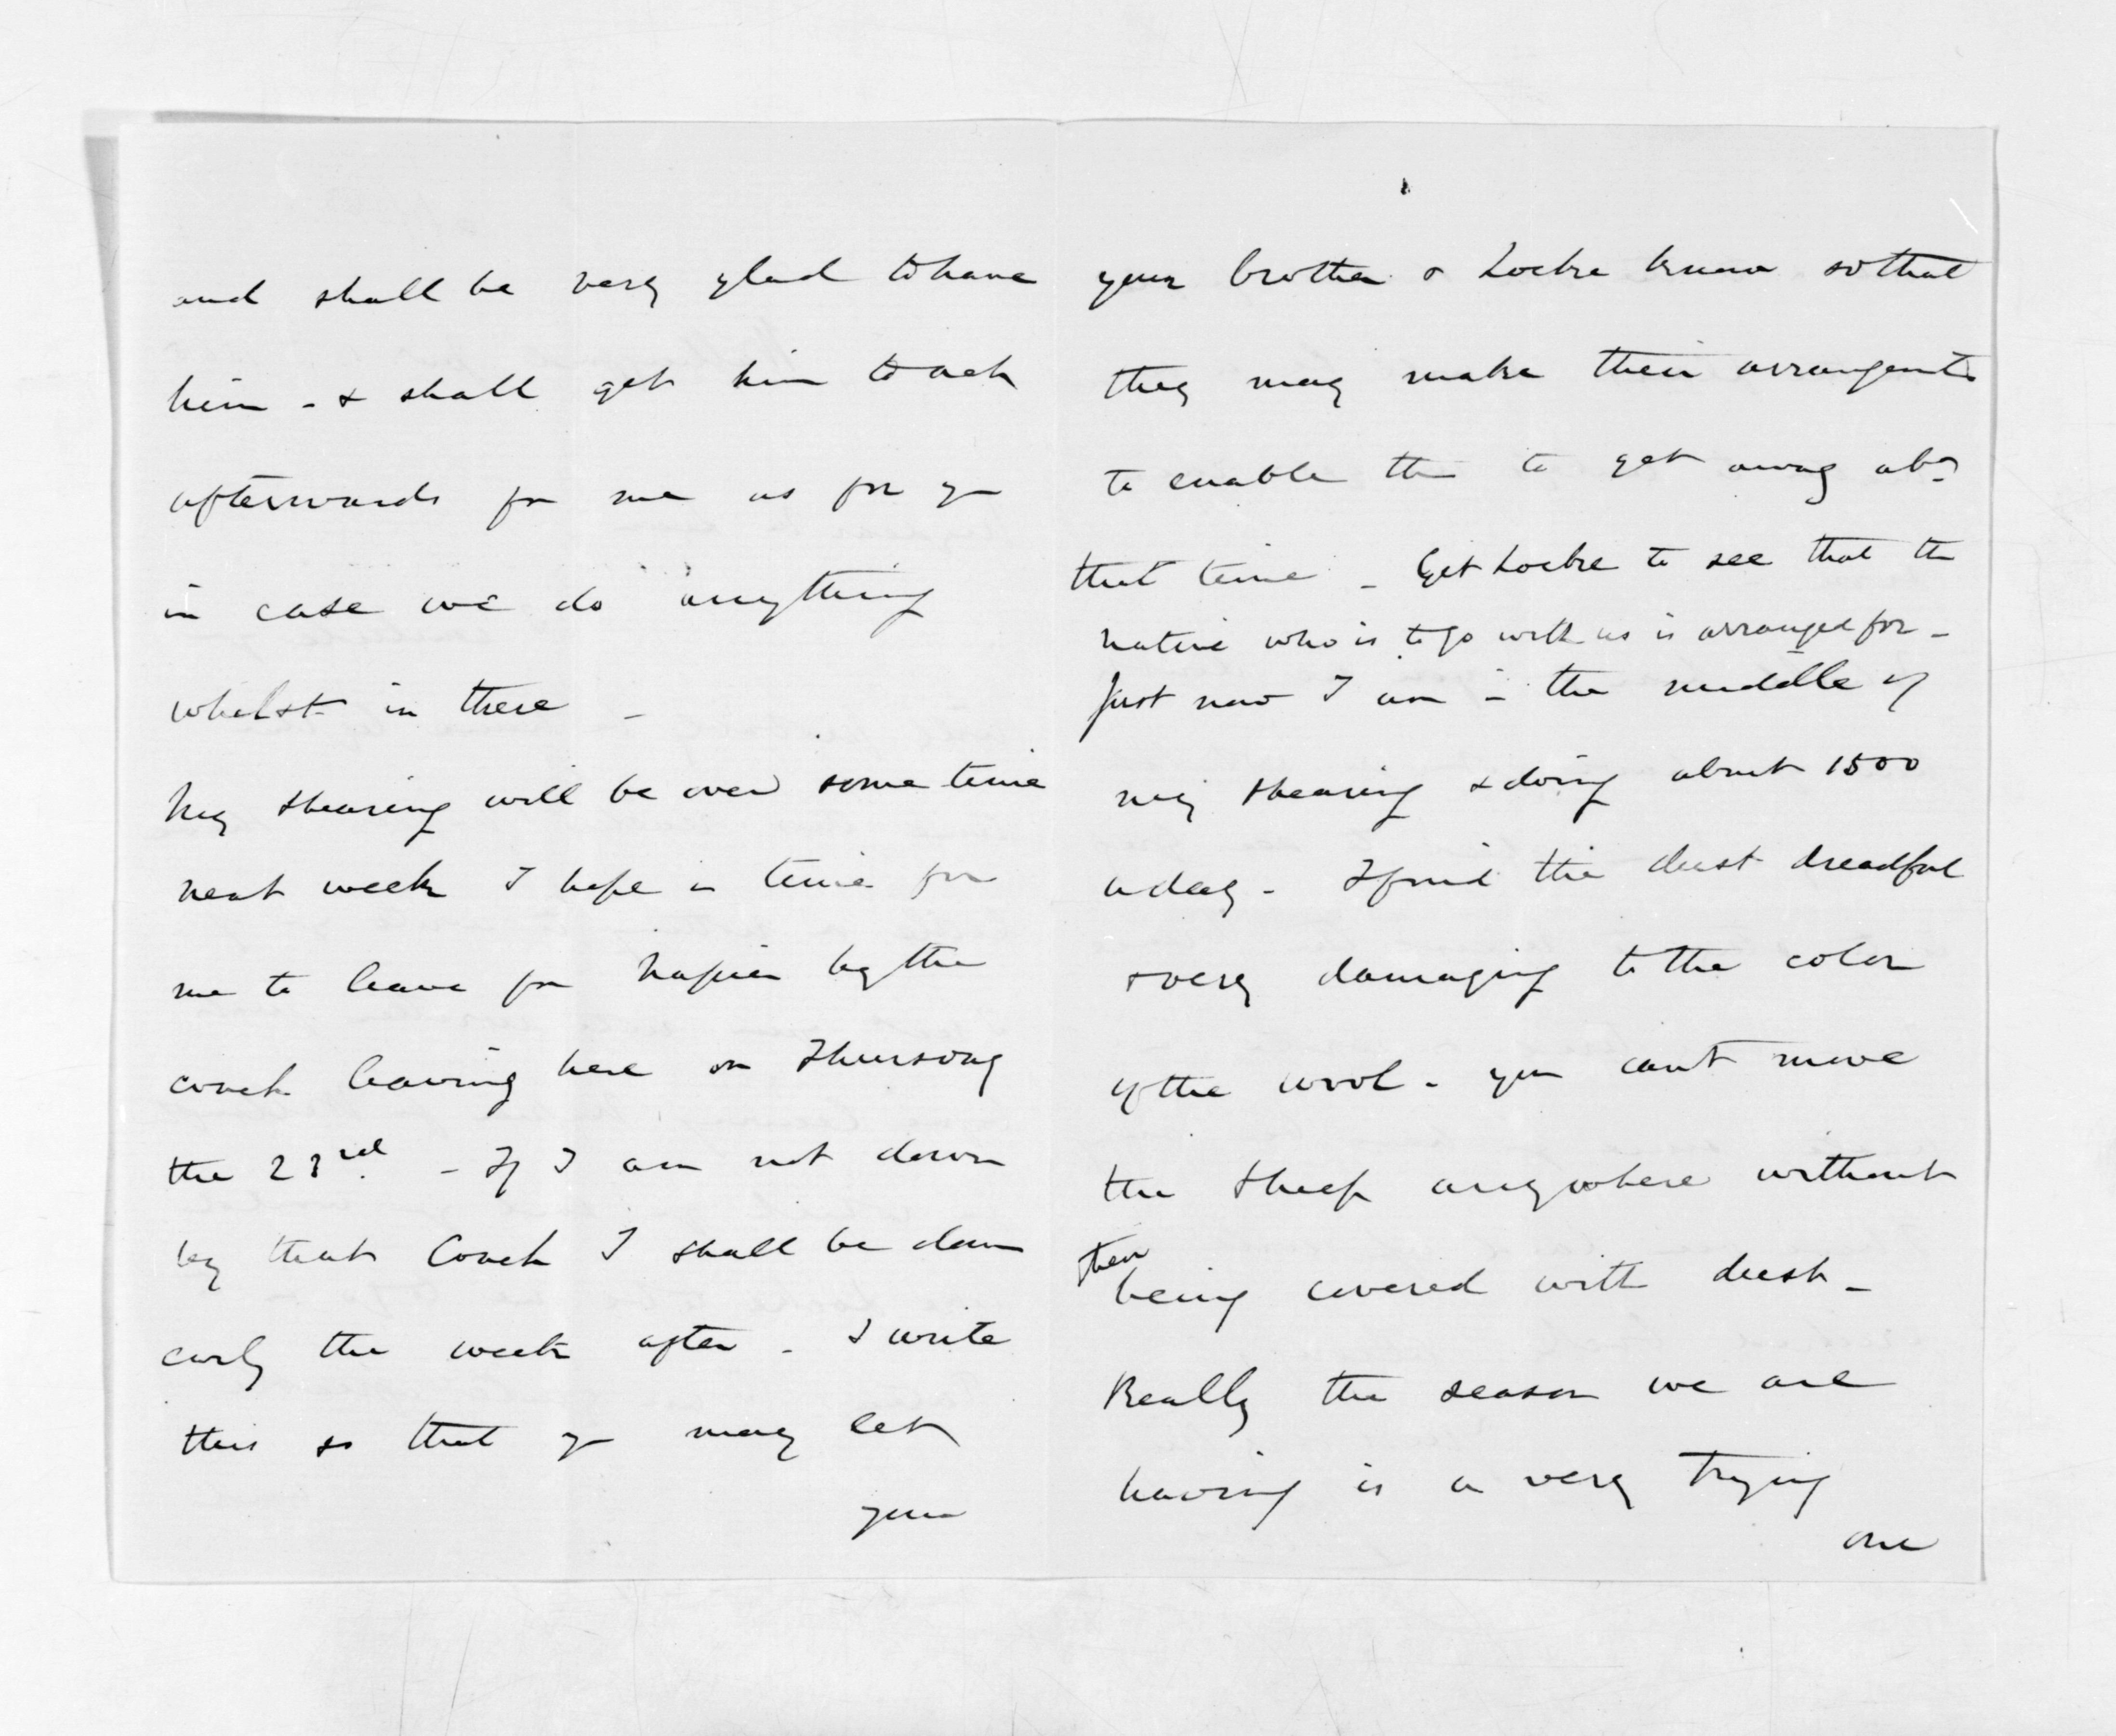 and shall be very glad to have
him - & shall get him to act
afterwards for me as for you
in case we do anything
whilst in there -
My shearing will be over some time
next week I hope in time for
me to leave for Napier by the
coach leaving here on Thursday
the 23rd. - If I am not down
by that Coach I shall be down
early the week after - I write
this so that you may let
your
your brother & Locke know so that
they may make their arrangemts
to enable them to get away abt
that time - Get Locke to see that the
native who is to go with us is arranged for -
Just now I am in the middle of
my shearing & doing about 1500
a day - I find the dust dreadful
& very damaging to the color
of the wool - you cant move
the sheep anywhere without
their
being covered with dust -
Really the season we are
having is a very trying
one